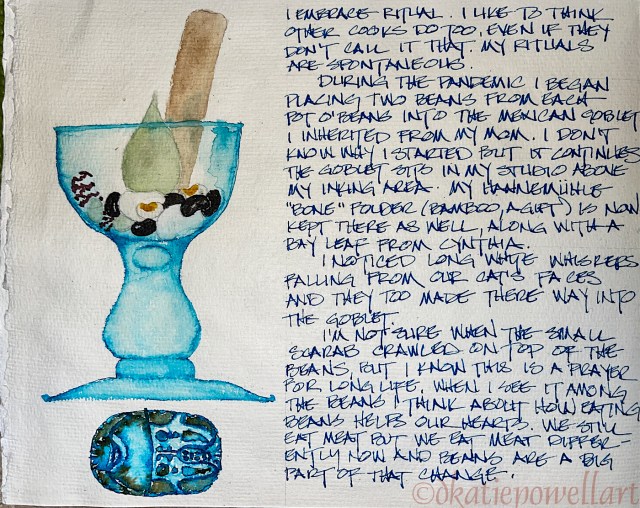 I EMBRACE RITUAL. I LIKE TO THINK
OTHER COOKS DO TOO, EVEN IF THEY
DON'T CALL IT THAT. MY RITUALS
ARE SPONTANEOUS.
DURING THE PANDEMIC I BEGAN
PLACING TWO BEANS FROM EACH
POT O'BEANS INTO THE MEXICAN GOBLET
I INHERITED FROM MY MOM. I DON'T
KNOW WHY I STARTED BUT IT CONTINUES.
THE GOBLET SITS IN MY STUDIO ABOVE
MY INKING AREA. MY HAHNEMÜHLE
"BONE" FOLDER (BAMBOO, A GIFT) IS NOW
KEPT THERE AS WELL, ALONG WITH A
BAY LEAF FROM CYNTHIA.
I NOTICED LONG WHITE WHISKERS
FALLING FROM OUR CAT'S FACES
AND THEY TOO MADE THERE WAY INTO
THE GOBLET.
I'M NOT SURE WHEN THE SMALL
SCARAB CRAWLED ON TOP OF THE
BEANS, BUT I KNOW THIS IS A PRAYER
FOR LONG LIFE. WHEN I SEE IT AMONG
THE BEANS I THINK ABOUT HOW EATING
BEANS HELPS OUR HEARTS. WE STILL
EAT MEAT BUT WE EAT MEAT DIFFER-
ENTLY NOW AND BEANS ARE A BIG
PART OF THAT CHANGE.
©dkatiepowellart